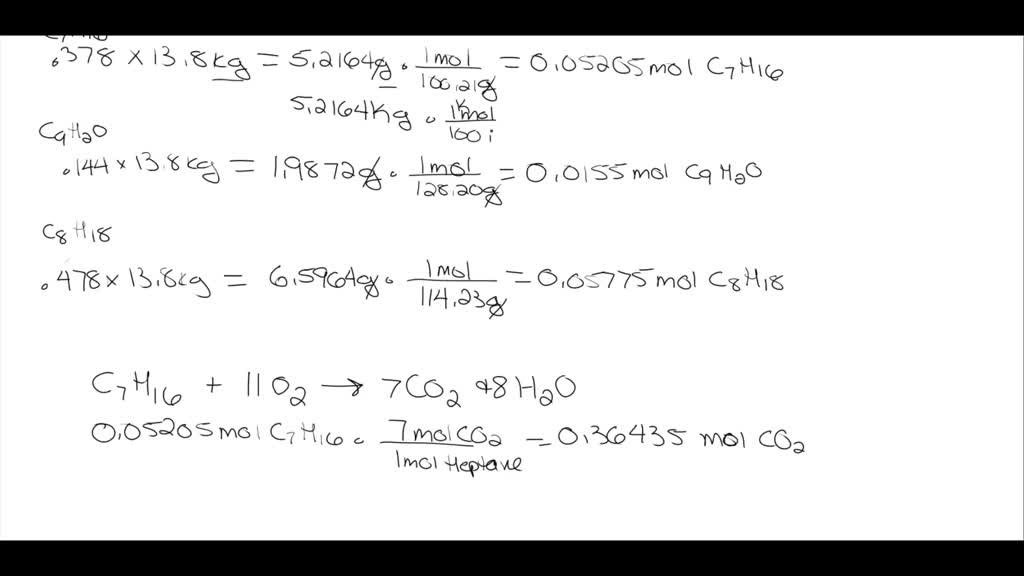 .378 × 13.8kg = 5.2164g · 1mol / 100.21g = 0.05205 mol C7H16
5.2164Kg · 1kmol / 100.
C9H20
.144 × 13.8kg = 1.9872g · 1mol / 128.20g = 0.0155 mol C9H20
C8H18
.478 × 13.8kg = 6.5964g · 1mol / 114.23g = 0.05775 mol C8H18
C7H16 + 11O2 → 7CO2 + 8H2O
0.05205 mol C7H16 · 7 mol CO2 / 1mol Heptane = 0.36435 mol CO2